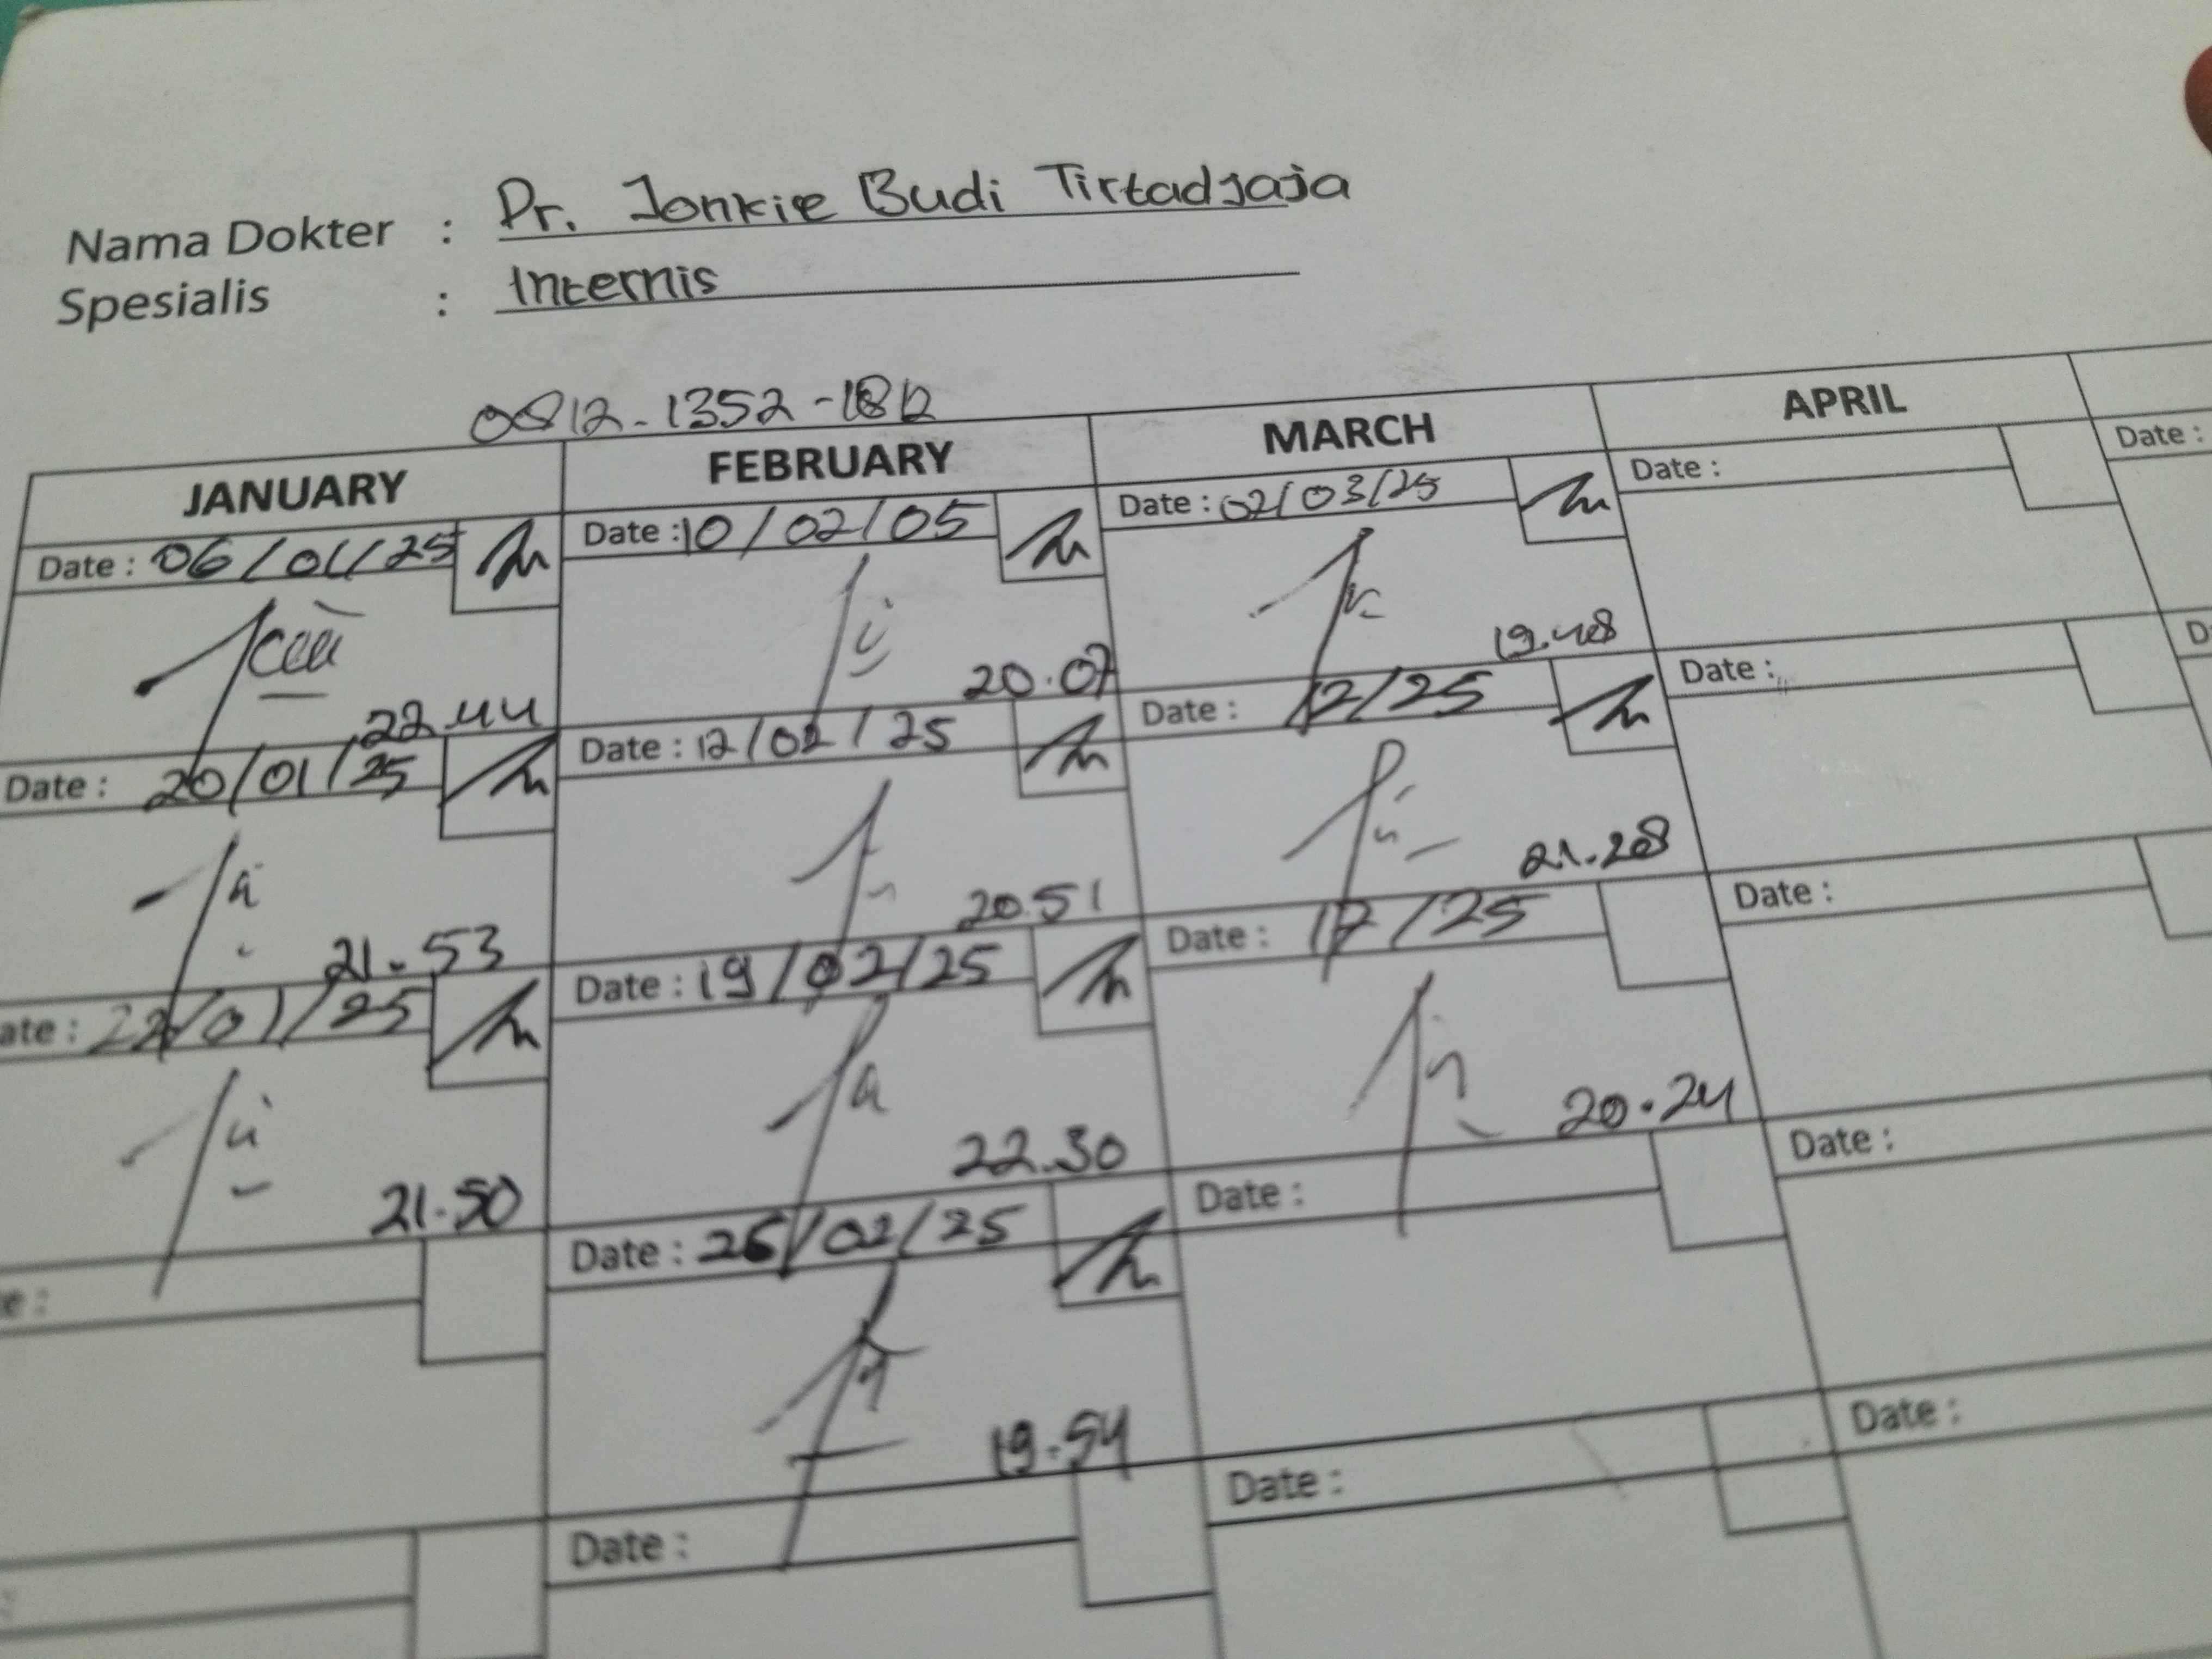 Nama Dokter : Dr. Jonkie Budi Tirtadjaja
Spesialis : Internis
0812-1352-1812
JANUARY FEBRUARY MARCH APRIL
Date : 06/01/25 Date : 10/02/05 Date : 02/03/25 Date : Date :
22.44 20.07 19.48
Date : 20/01/25 Date : 12/02/25 Date : 12/25 Date : D
21.53 20.51 21.28
ate : 22/01/25 Date : 19/02/25 Date : 17/25 Date :
21.50 22.30 20.24
e : Date : 26/02/25 Date : Date :
19.54
Date : Date : Date :